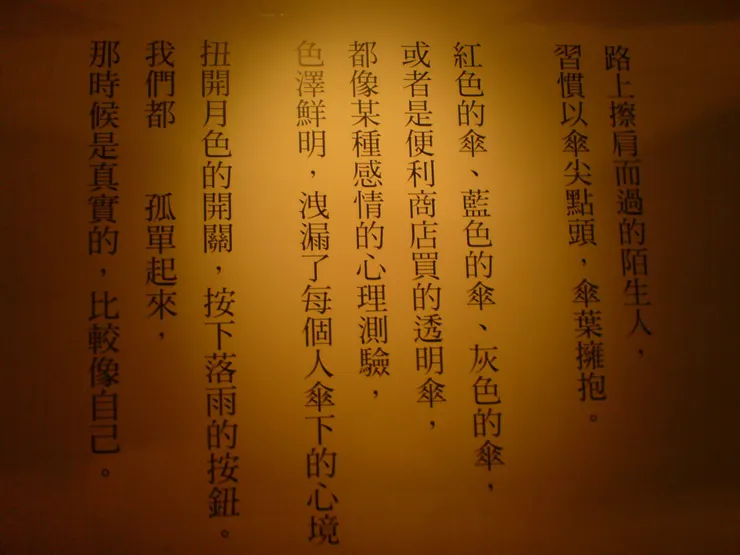 路上擦肩而過的陌生人，
習慣以傘尖點頭，傘葉擁抱。
紅色的傘、藍色的傘、灰色的傘，
或者是便利商店買的透明傘，
都像某種感情的心理測驗，
色澤鮮明，洩漏了每個人傘下的心境
扭開月色的開關，按下落雨的按鈕。
我們都　孤單起來，
那時候是真實的，比較像自己。